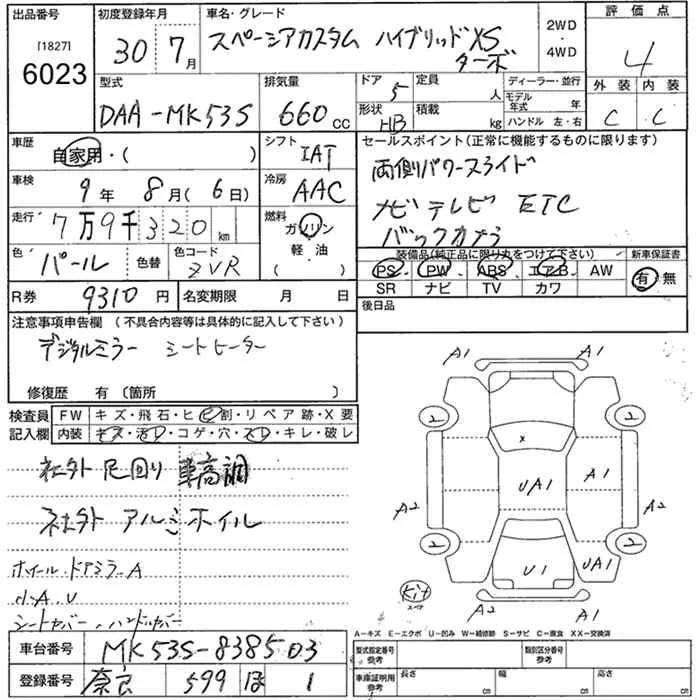 出品番号
[1827]
6023
初度登録年月
30年 7月
車名・グレード
スペーシアカスタム ハイブリッドXS
ターボ
2WD
・
4WD
評価点
4
型式
DAA-MK53S
排気量
660 cc
ドア
5
形状
HB
定員 人
積載 kg
ディーラー・並行
モデル年式 年
ハンドル 左・右
外装 内装
C C
車歴
自家用・( )
シフト
IAT
車検
9年 8月(6日)
冷房
AAC
走行
7万9千320km
燃料
ガソリン
軽・油
( )
色
パール
色替
色コード
ZVR
R券
9310円
名変期限 月 日
セールスポイント(正常に機能するものに限ります)
両側パワースライド
ナビ テレビ ETC
バックカメラ
装備品(純正品に限り丸をつけて下さい)
PS PW ABS エアB AW
SR ナビ TV カワ
新車保証書
有・無
後日品
注意事項申告欄(不具合内容等は具体的に記入して下さい)
デジタルミラー シートヒーター
修復歴 有(箇所 )
検査員
記入欄
FW キズ・飛石・ヒビ割・リペア跡・X要
内装 キズ・汚レ・コゲ・穴・スレ・キレ・破レ
社外 足回り 車高調
社外 アルミホイル
ホイール・ドアミラーA
小A.U
シートカバー、ハンドルカバー
A1 A1
2 2
x
A2 UA1 A1 A2
2 2
U1 UA1
Kit
A2 A1
A-キズ E-エクボ U-凹み W-補修跡 S-サビ C-腐食 XX-交換済
車台番号
MK53S-838503
登録番号
奈良 599 ほ 1
型式指定番号
参考
類別区分番号
参考
車庫証明用
参考
長さ cm
幅 cm
高さ cm